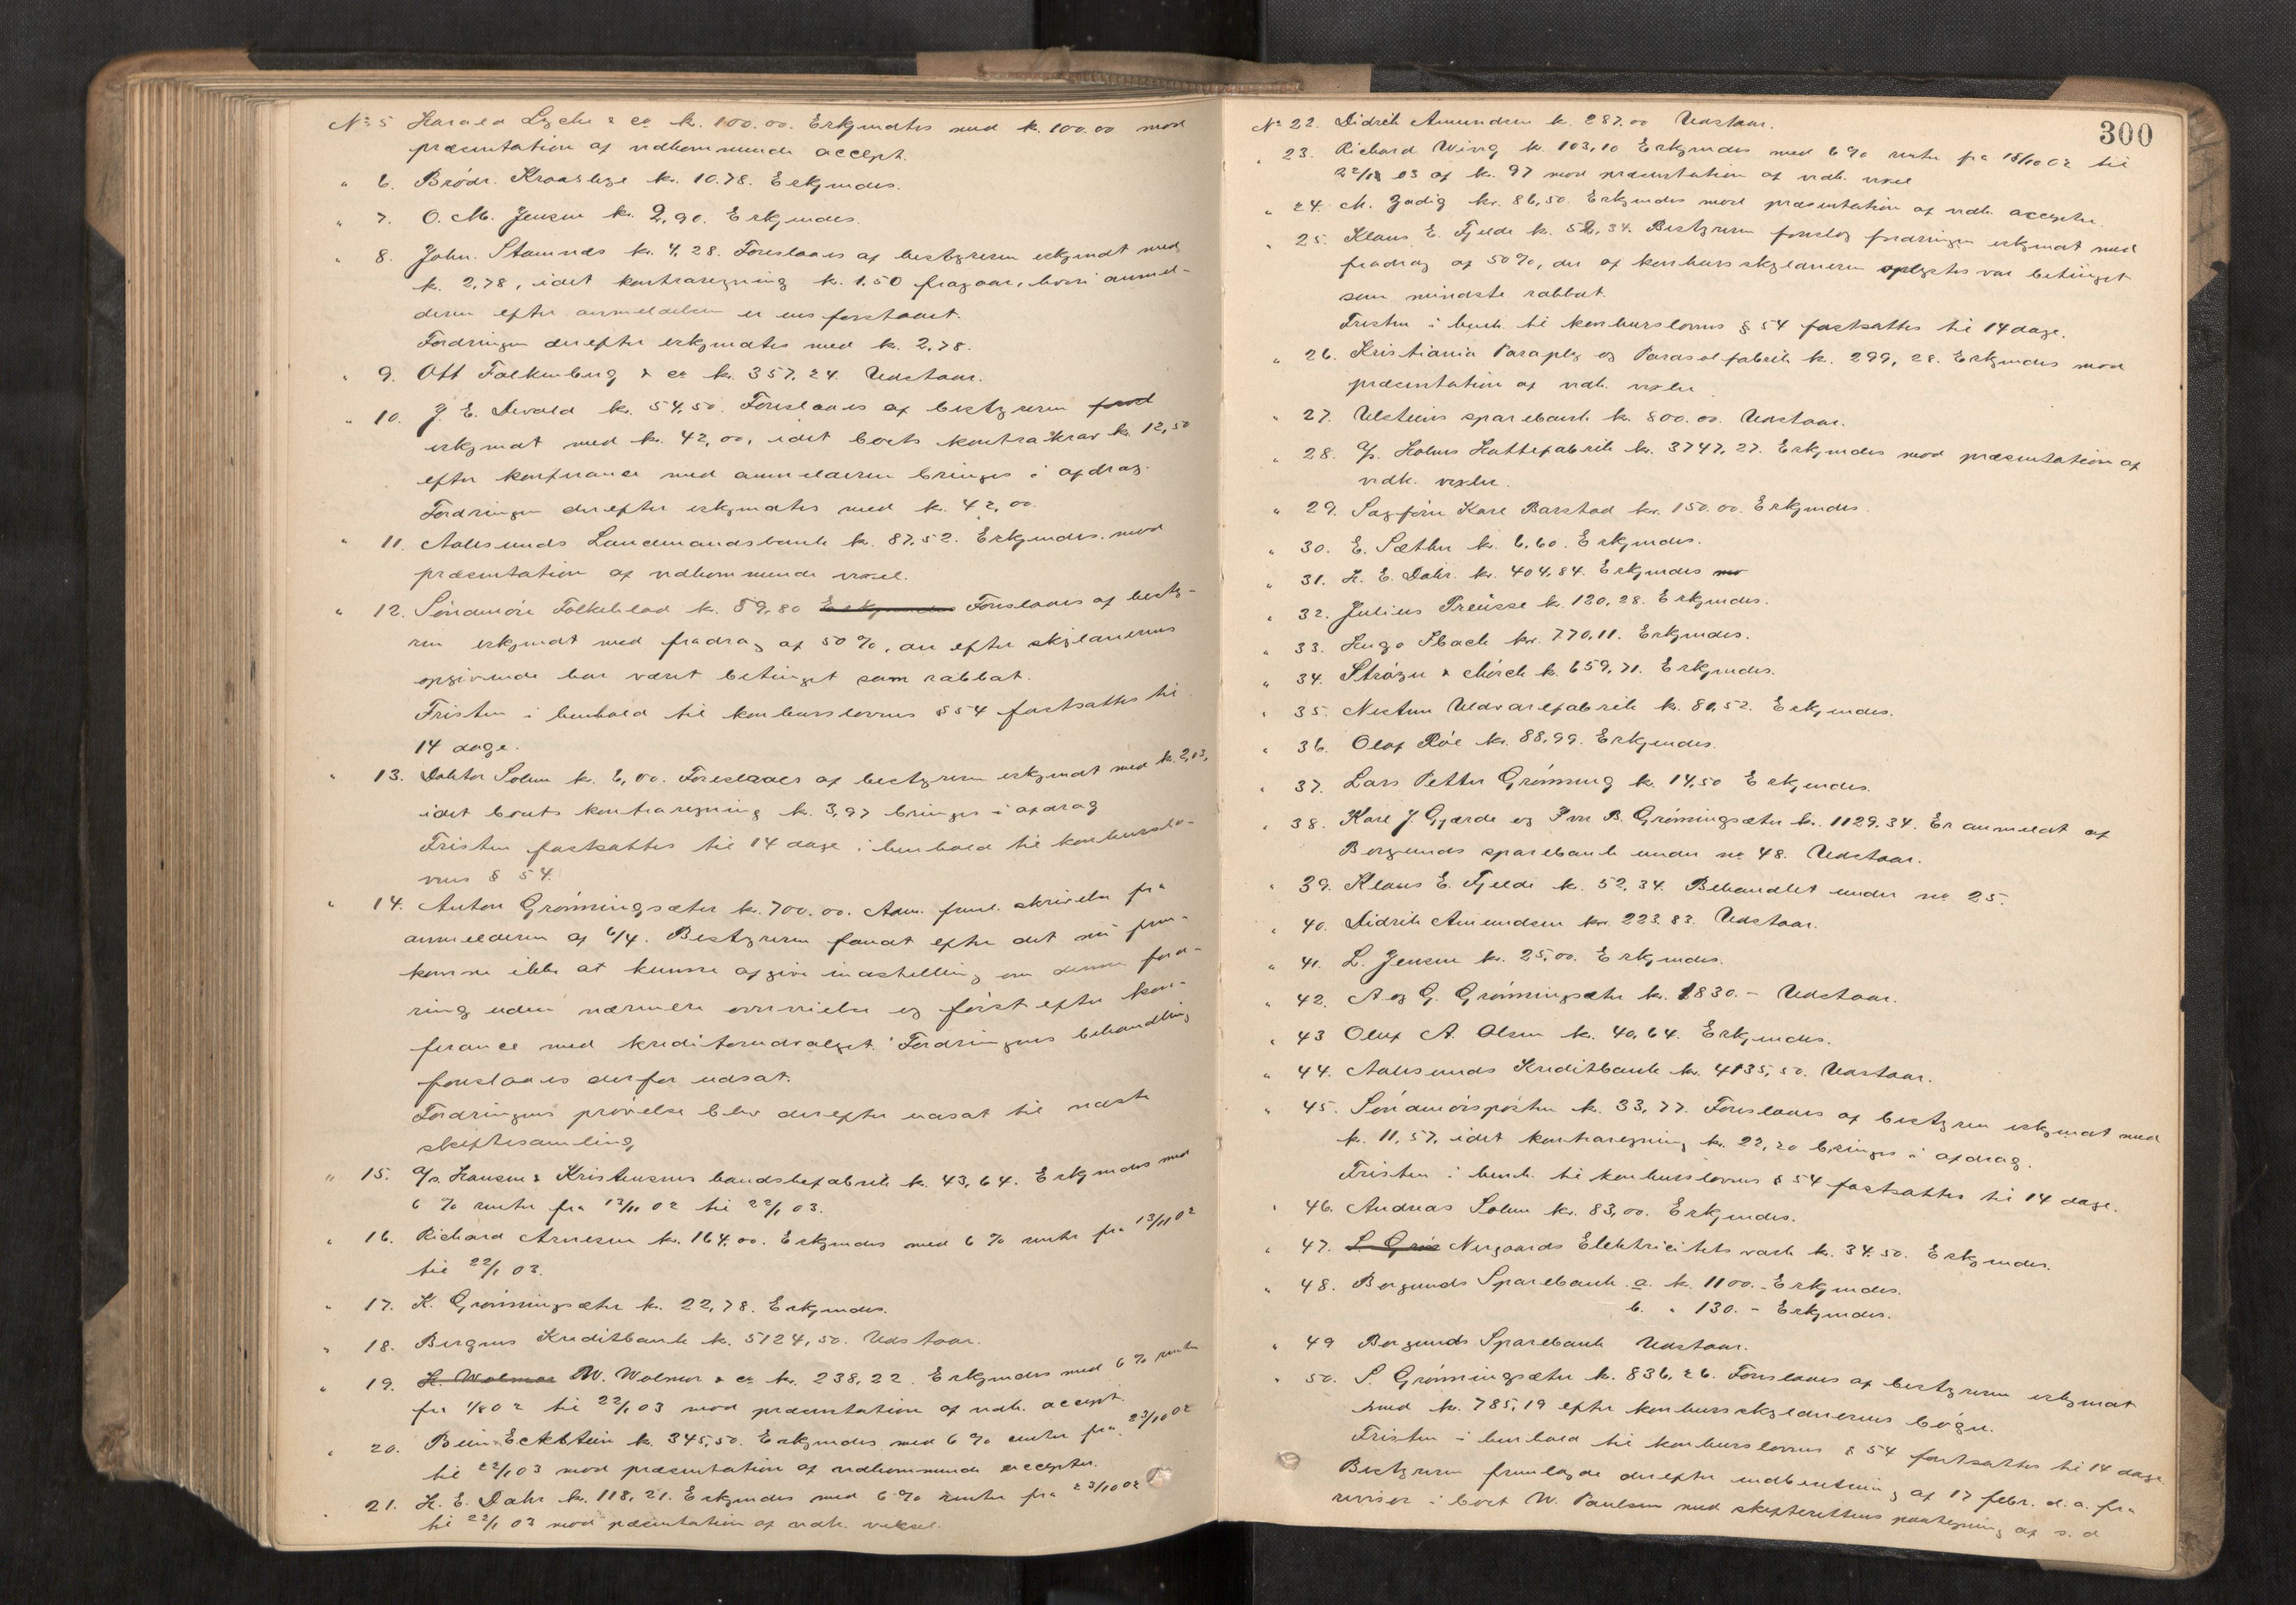 No 5 Harald Lyche & co k. 100.00. Erkjendtes med k. 100.00 mod
præsentation af vedkommende accept.
" 6. Brødr. Kraasbye kr. 10.78. Erkjendes.
" 7. O. M. Jensen kr. 2,90. Erkjendes.
" 8. John. Stamnes kr. 4,28. Foreslaaes af bestyreren erkjendt med
k. 2,78, idet kontraregning k. 1.50 fragaar, hvori anmel-
deren efter anmeldelsen er enforstaaet.
Fordringen derefter erkjendtes med k. 2,78.
" 9. Ott Falkenberg & co k. 357,24. Udstaar.
" 10. J. E. Devold k. 54,50. Foreslaaes af bestyreren
erkjendt med k. 42,00, idet boets kontrakrav k. 12,50
efter konferance med anmelderen bringes i afdrag.
Fordringen derefter erkjendtes med k. 42,00.
" 11. Aalesunds Landmandsbank k. 87,52. Erkjendes mod
præsentation af vedkommende vexel.
" 12. Søndmøre Folkeblad k. 59,80 Erkjendes Foreslaaes af besty-
ren erkjendt med fradrag af 50 %, der efter skyldnerens
opgivende har været betinget som rabbat.
Fristen i henhold til konkurslovens § 54 fastsattes til
14 dage.
" 13. Doktor Solem k. 6,00. Foreslaaes af bestyreren erkjendt med k. 2,03,
idet boets kontraregning k. 3,97 bringes i afdrag
Fristen fastsattes til 14 dage i henhold til konkurslo-
vens § 54.
" 14. Anton Grønningsæter k. 700.00. Adm. freml. skrivelse fra
anmelderen af 6/4. Bestyreren fandt efter det nu frem-
komne ikke at kunne afgive indstilling om denne ford-
ring uden nærmere overveielse og først efter kon-
ferance med kreditorudvalget. Fordringens behandling
foreslaaes derfor udsat.
Fordringens prøvelse blev derefter udsat til næste
skiftesamling
" 15. A/s Hansen & Kristensens handskefabrik k. 43,64. Erkjendes med
6 % renter fra 13/11 02 til 22/1 03.
" 16. Richard Arnesen k. 164.00. Erkjendes med 6 % renter fra 13/11 02
til 22/1 03.
" 17. K. Grønningsæter k. 22,78. Erkjendes.
" 18. Bergens Kreditbank k. 5124,50. Udstaar.
" 19. H. Wolmar W. Wolmer & co kr. 238,22. Erkjendes med 6 % renter
fra 1/8 02 til 22/1 03 mod præsentation af vedk. accept.
" 20. Eckstein k. 345,50. Erkjendes med 6 % renter fra 23/10 02
til 22/1 03 mod præsentation af vedkommende accepter.
" 21. H. E. Dahr k. 118,21. Erkjendes med 6 % renter fra 23/10 02
til 22/1 03 mod præsentation af vedk. veksel.
300
No 22. Didrik Amundsen k. 287.00 Udstaar.
" 23. Richard Wing k. 103,10 Erkjendes med 6 % renter fra 18/10 02 til
22/1 03 af k. 97 mod præsentation af vedk. vexel
" 24. M. Zadig kr. 86,50. Erkjendes mod præsentation af vedk. accepter.
" 25. Klaus E. Fjelde k. 52,34. Bestyreren foreslog fordringen erkjendt med
fradrag af 50 %, der af konkursskyldneren oplystes var betinget
som mindste rabbat.
Fristen i henh. til konkurslovens § 54 fastsattes til 14 dage.
" 26. Kristiania Paraply og Parasolfabrik k. 299,28. Erkjendes mod
præsentation af vedk. vexler
" 27. Ulsteins sparebank k. 800.00. Udstaar.
" 28. A/s. Holms Hattefabrik k. 3747,27. Erkjendes mod præsentation af
vedk. vexler.
" 29. Sagfører Kare Barstad kr. 150.00. Erkjendes.
" 30. E. Sæther k. 6,60. Erkjendes.
" 31. H. E. Dahr. kr. 404,84. Erkjendes mo
" 32. Julius Preusse k. 120,28. Erkjendes.
" 33. Hugo Ibach kr. 770,11. Erkjendes.
" 34. Strøyer & Mørch k. 659,71. Erkjendes.
" 35. Nestun Uldvarefabrik k. 80,52. Erkjendes.
" 36. Olaf Røe kr. 88,99. Erkjendes.
" 37. Lars Petter Grønning k. 14,50 Erkjendes.
" 38. Karl J. Gjærde og Iver B. Grønningsæter k. 1129,34. Er anmeldt af
Borgunds sparebank under no 48. Udstaar.
" 39. Klaus E. Fjelde k. 52,34. Behandlet under no 25.
" 40. Didrik Amundsen kr. 223.83. Udstaar.
" 41. L. Jensen k. 25,00. Erkjendes.
" 42. A og G. Grønningsæter k. 1830.- Udstaar.
" 43 Oluf A. Olsen k. 40,64. Erkjendes.
" 44. Aalesunds Kreditbank kr. 4135,50. Udstaar.
" 45. Søndmørsposten k. 33,77. Foreslaaes af bestyren erkjendt med
k. 11,57, idet kontraregning k. 22,20 bringes i afdrag.
Fristen i henh. til konkurslovens § 54 fastsattes til 14 dage.
" 46. Andreas Solem kr. 83,00. Erkjendes.
" 47. Nergaards Elektricitetsværk k. 34.50. Erkjendes.
" 48. Borgunds Sparebank a. k. 1100.- Erkjendes.
b. " 130.- Erkjendes.
" 49 Borgunds Sparebank Udstaar.
" 50. S. Grønningsæter k. 836,26. Foreslaaes af bestyreren erkjendt
med k. 785,19 efter konkursskyldnerens bøger.
Fristen i henhold til konkurslovens § 54 fastsattes til 14 dage
Bestyreren fremlagde derefter indberetning af 17 febr. d. a. fra
revisor i boet W. Paulsen med skifterettens paategning af s. d